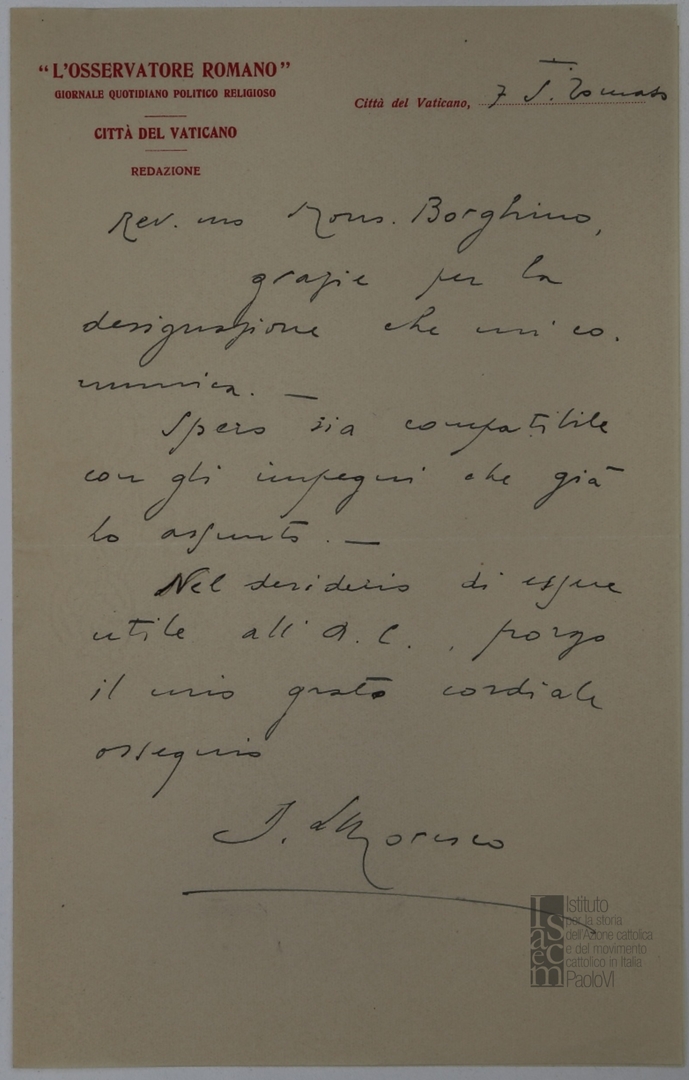 “ L'OSSERVATORE ROMANO ”
GIORNALE QUOTIDIANO POLITICO RELIGIOSO
CITTÀ DEL VATICANO
REDAZIONE
Città del Vaticano, 7 S. Tomaso
Rev. mo Mons. Borghino,
grazie per la
designazione che mi co.
munica. —
Spero sia compatibile
con gli impegni che già
ho assunto. —
Nel desiderio di essere
utile all' A. C., porgo
il mio grato cordiale
ossequio
Moresco
Istituto
per la storia
dell'Azione cattolica
e del movimento
cattolico in Italia
PaoloVI
Isacem